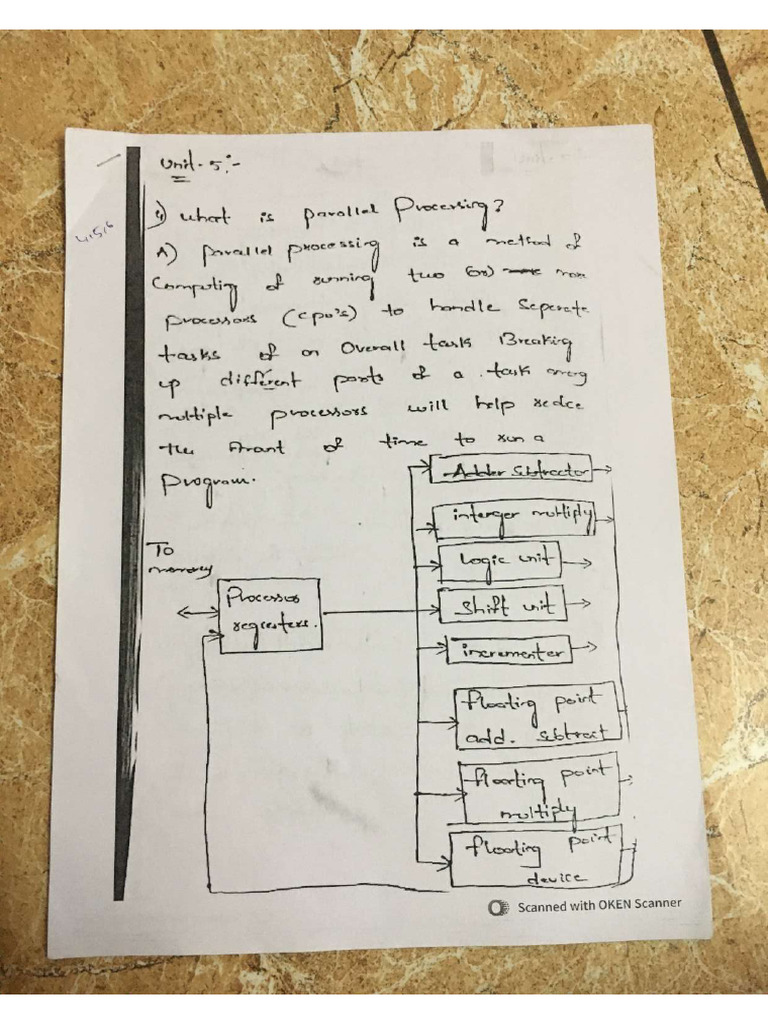 Unit - 5 :-
4,5,6
1) what is parallel Processing?
A) parallel processing is a method of
Computing of running two (or) more
processors (cpu's) to handle Seperate
tasks of an Overall task Breaking
up different parts of a task among
multiple processors will help reduce
the Amount of time to run a
program.
Adder subtractor
interger multiply
To
memory
Logic unit
Processor
regesters.
Shift unit
incrementer
floating point
add. subtract
floating point
multiply
floating point
device
Scanned with OKEN Scanner